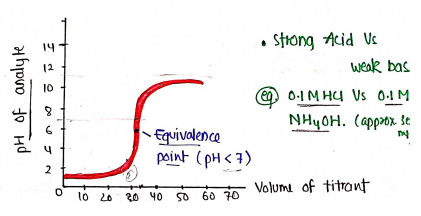 pH of analyte
14
12
10
8
6
4
2
0
10 20 30 40 50 60 70
Volume of titrant
Equivalence
point (pH < 7)
• Strong Acid Vs
weak bas
eg. 0.1 M HCl Vs 0.1 M
NH4OH. (approx